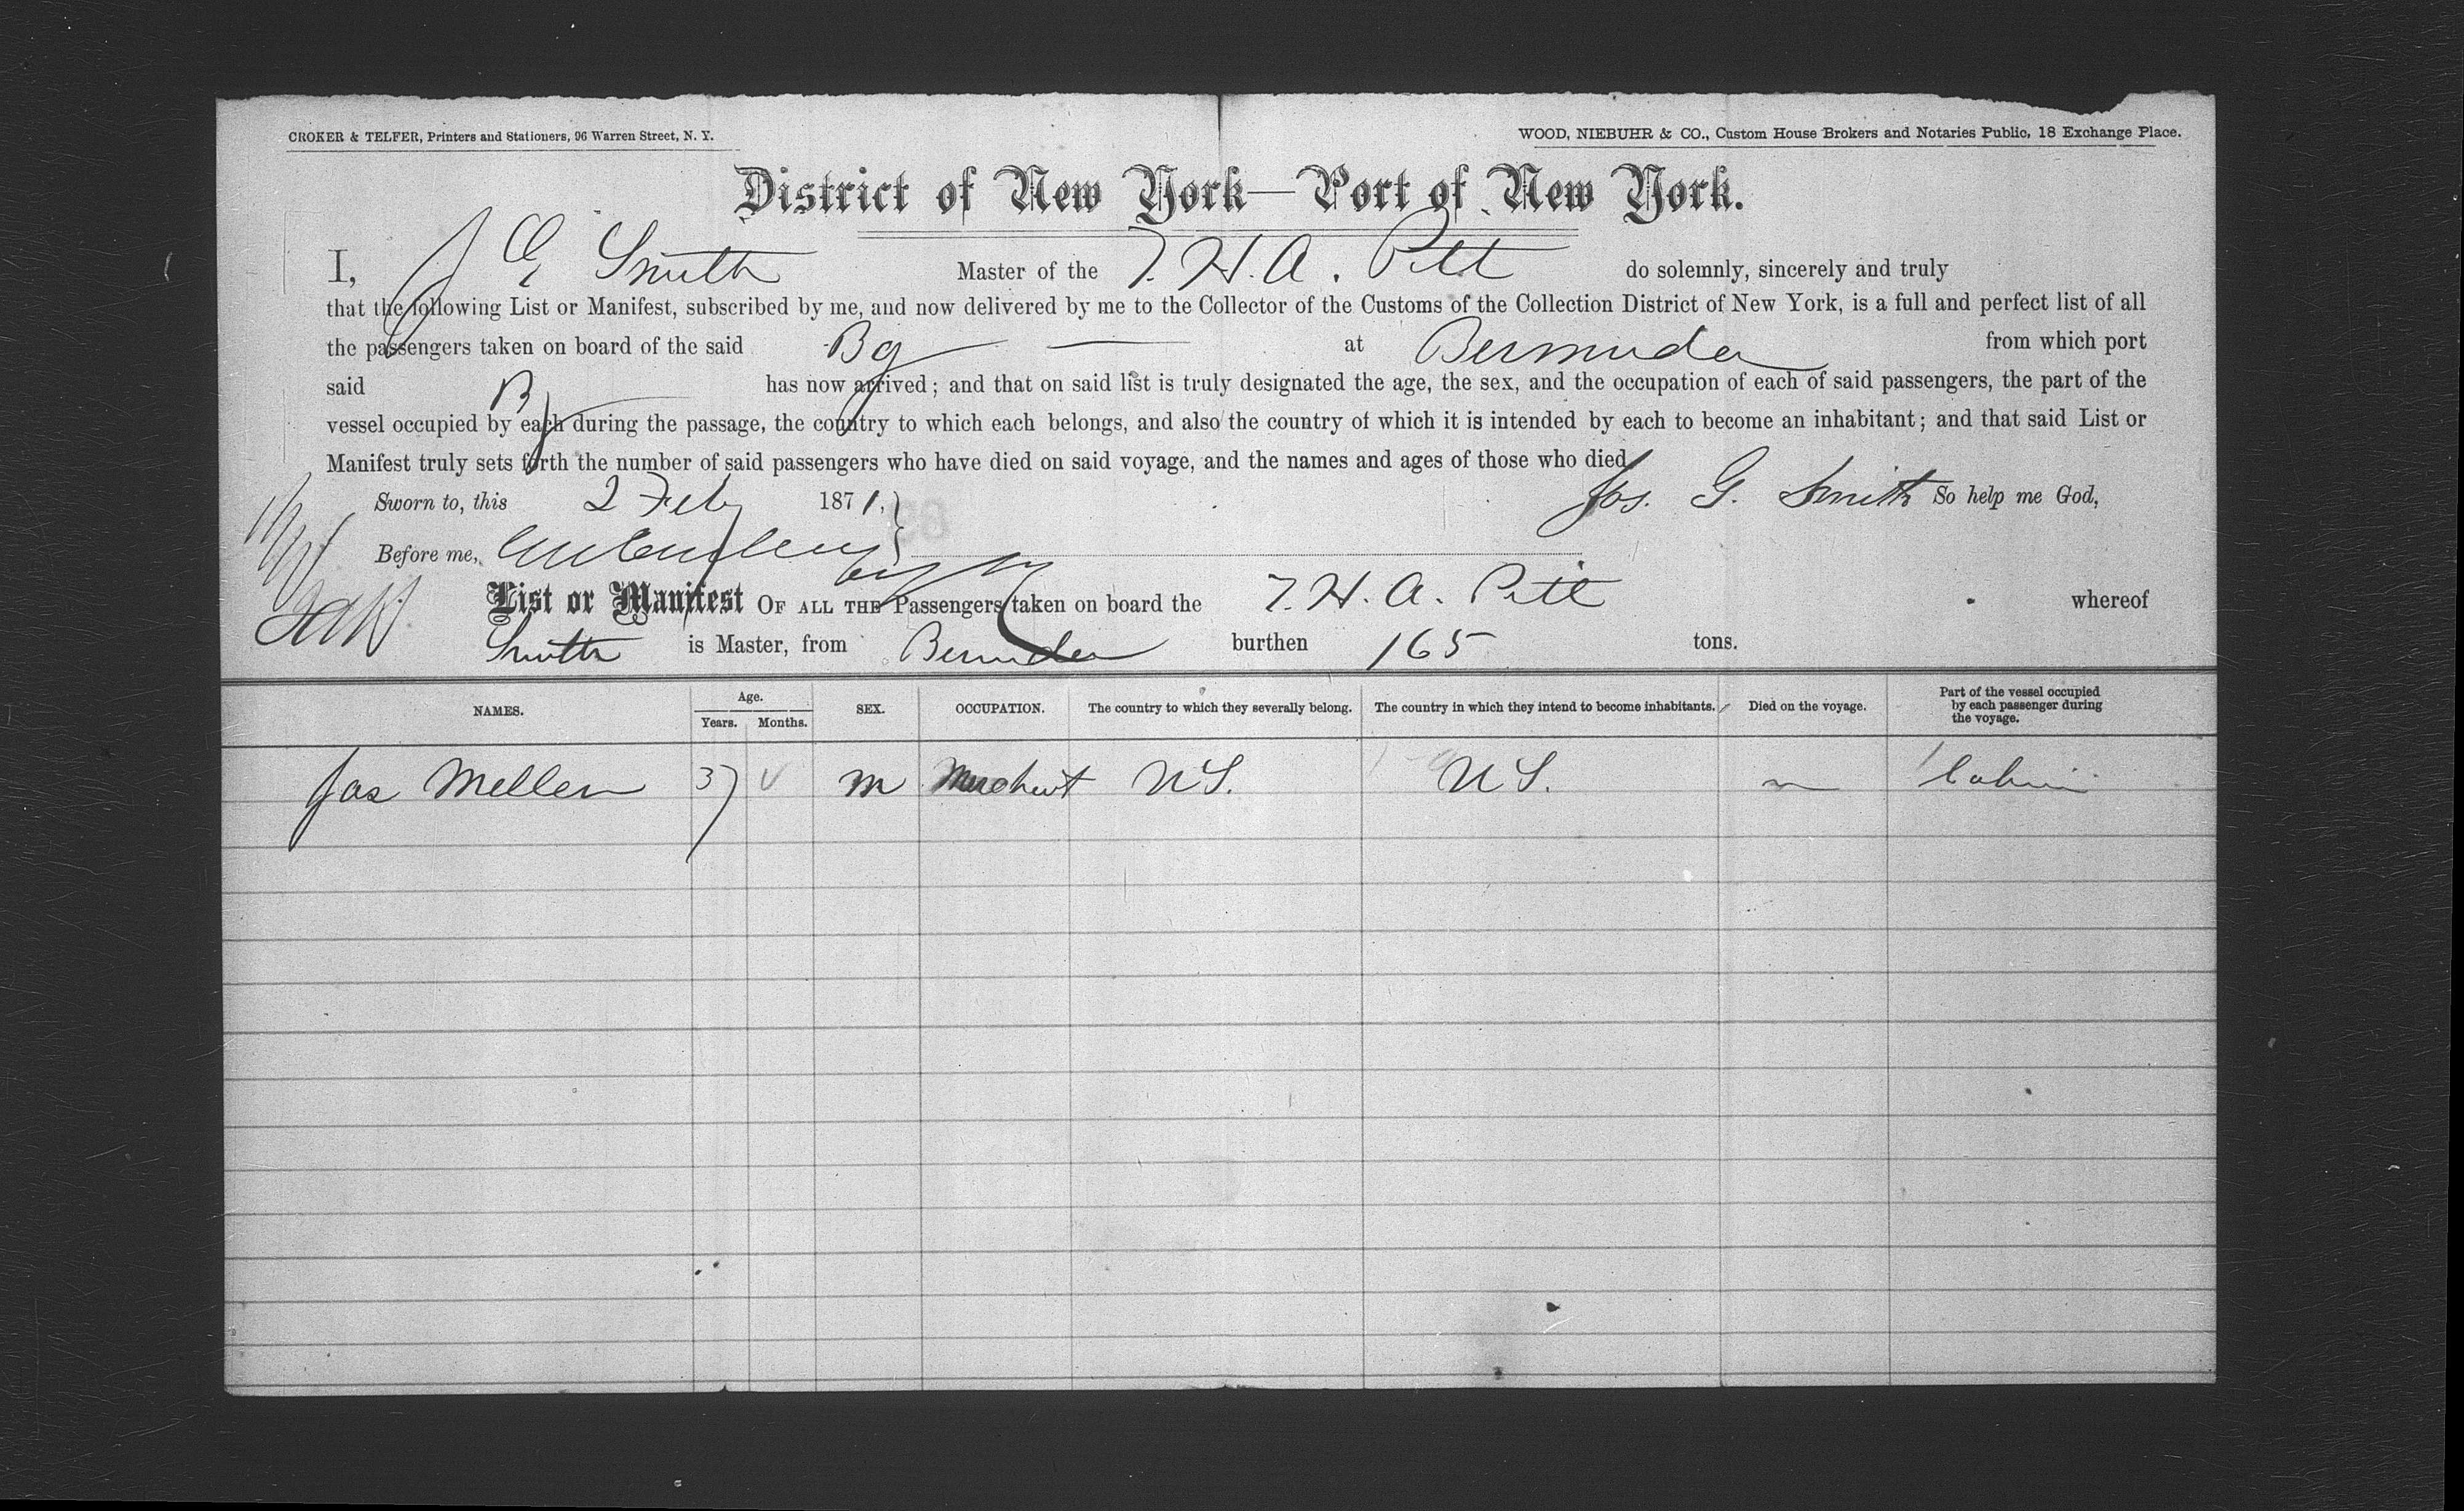 CROKER & TELFER, Printers and Stationers, 96 Warren Street, N. Y.
WOOD, NIEBUHR & CO., Custom House Brokers and Notaries Public, 18 Exchange Place.
District of New York—Port of New York.
I, J G Smith Master of the T. H. A. Pitt do solemnly, sincerely and truly
that the following List or Manifest, subscribed by me, and now delivered by me to the Collector of the Customs of the Collection District of New York, is a full and perfect list of all
the passengers taken on board of the said Bg at Bermuda from which port
said Bg has now arrived; and that on said list is truly designated the age, the sex, and the occupation of each of said passengers, the part of the
vessel occupied by each during the passage, the country to which each belongs, and also the country of which it is intended by each to become an inhabitant; and that said List or
Manifest truly sets forth the number of said passengers who have died on said voyage, and the names and ages of those who died.
Sworn to, this 2 Feby 1871, Jos. G. Smith So help me God,
Before me,
List or Manifest OF ALL THE Passengers taken on board the T. H. A. Pitt whereof
Smith is Master, from Bermuda burthen 165 tons.
NAMES. Age. Years. Months. SEX. OCCUPATION. The country to which they severally belong. The country in which they intend to become inhabitants. Died on the voyage. Part of the vessel occupied by each passenger during the voyage.
Jas Mellen 37 m Merchant US. US. Cabin